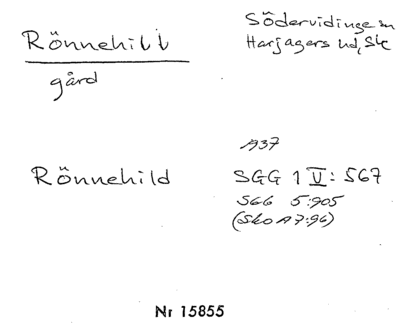 Rönnehill
Södervidinge sn
Harjagers hd, Sk
gård
1937
Rönnehild
SGG 1 V: 567
SGG 5:905
(Sko A 7:96)
Nr 15855